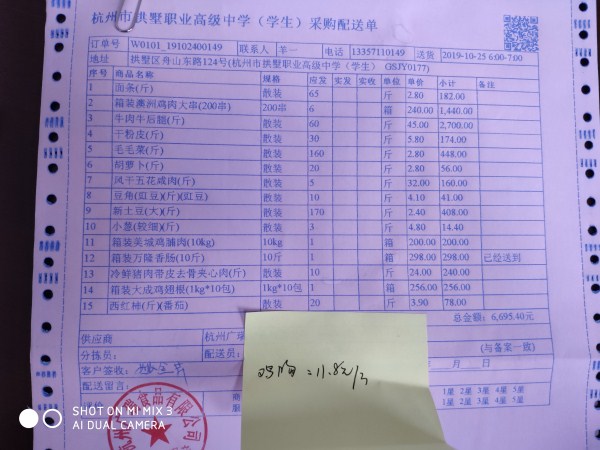 杭州市拱墅职业高级中学（学生）采购配送单
订单号 W0101_19102400149 联系人 羊一 电话 13357110149 送货 2019-10-25 6:00-7:00
地址 拱墅区舟山东路124号(杭州市拱墅职业高级中学（学生） GSJY0177)
序号 商品名称 规格 应发 实发 实收 单位 单价 小计 备注
1 面条(斤) 散装 65 斤 2.80 182.00
2 箱装藕洲鸡肉大串(200串) 200串 6 箱 240.00 1,440.00
3 牛肉牛后腿(斤) 散装 60 斤 45.00 2,700.00
4 干粉皮(斤) 散装 30 斤 5.80 174.00
5 毛毛菜(斤) 散装 160 斤 2.80 448.00
6 胡萝卜(斤) 散装 20 斤 2.80 56.00
7 风干五花咸肉(斤) 散装 5 斤 32.00 160.00
8 豆角(豇豆)(斤)(豇豆) 散装 10 斤 4.10 41.00
9 新土豆(大)(斤) 散装 170 斤 2.40 408.00
10 小葱(较细)(斤) 散装 3 斤 4.80 14.40
11 箱装美城鸡脯肉(10kg) 10kg 1 箱 200.00 200.00
12 箱装万隆香肠(10斤) 10斤 1 箱 298.00 298.00 已经送到
13 冷鲜猪肉带皮去骨夹心肉(斤) 散装 10 斤 24.00 240.00
14 箱装大成鸡翅根(1kg*10包) 1kg*10包 1 箱 256.00 256.00
15 西红柿(斤)(番茄) 散装 20 斤 3.90 78.00
总金额: 6,695.40
供应商 杭州广
(与备案一致)
分拣员: 配送员: 月 日
客户签收:
配送留言: 1星 2星 3星 4星 5星
1星 2星 3星 4星 5星
食品有限公司
=11.8元/斤
SHOT ON MI MIX 3
AI DUAL CAMERA